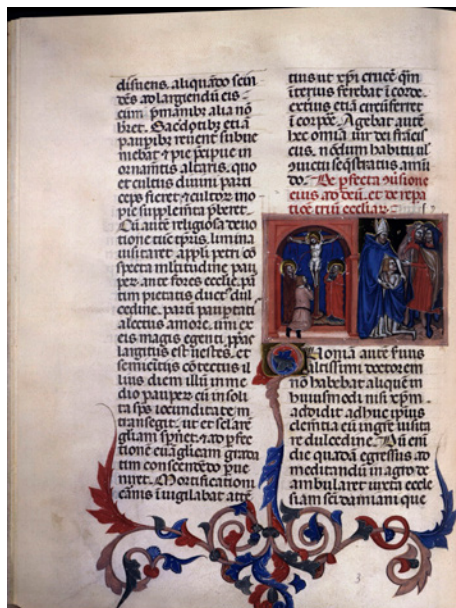 disuens. aliquãdo scin
dẽs ad largiendũ eis
cum p̃manibȝ alia nõ
hẽret. Sacẽdotibȝ etiã
paupibȝ reuent subue
niebat ⁊ pie p̃cipue in
ornam̃tis altaris. quo
et cultus diuini parti
ceps fieret ⁊ cultor
pie supplem̃ta p̃beret.
Cũ autẽ religiosa deuo
tione tũc tp̃ris. limina
uisitaret apl̃i petri cõ
specta m̃ltitudine pau
peȝ ante fores ecclie. p̃
tim pietatis duct' dul
cedine. partĩ paup̃tati
alectus amore. uni ex
eis magis egenti
largitus est uestes. et
semicĩtijs cõtectus il
lius diem illũ in me
dio paupeȝ cũ insoli
ta sp̃s iocunditate m
transegit. ut et sclãrẽ
gliam sp̃net. ⁊ ad p̃fec
tionẽ euãglicam grada
tim conscendẽdo p̃ue
niret. Mortificationi
carnis ĩuigilabat attẽ
tius ut xp̃i crucẽ qm̃
ĩterius ferebat ĩ corde.
exterius etiã circũferret
ĩ corpe. Agebat autẽ
hec omia uir dei frãcis
cus. nõdum habitu ul'
ĩuictu seq̃stratus a mũ
do. De p̃fecta ɔuersione
eius ad deũ. et de repa
tiõe triũ eccliaȝ
Qoniã autẽ s̃uus
altissimi doctorem
nõ habebat aliquẽ in
huiusmodi nisi xp̃m.
addidit adhuc ip̃ius
clem̃tia eũ in grẽ uisita
re dulcedine. Dũ em̃
die quadã egressus ad
meditandũ in agro de
ambularet iuxta eccle
siam sc̃i damiani que
3